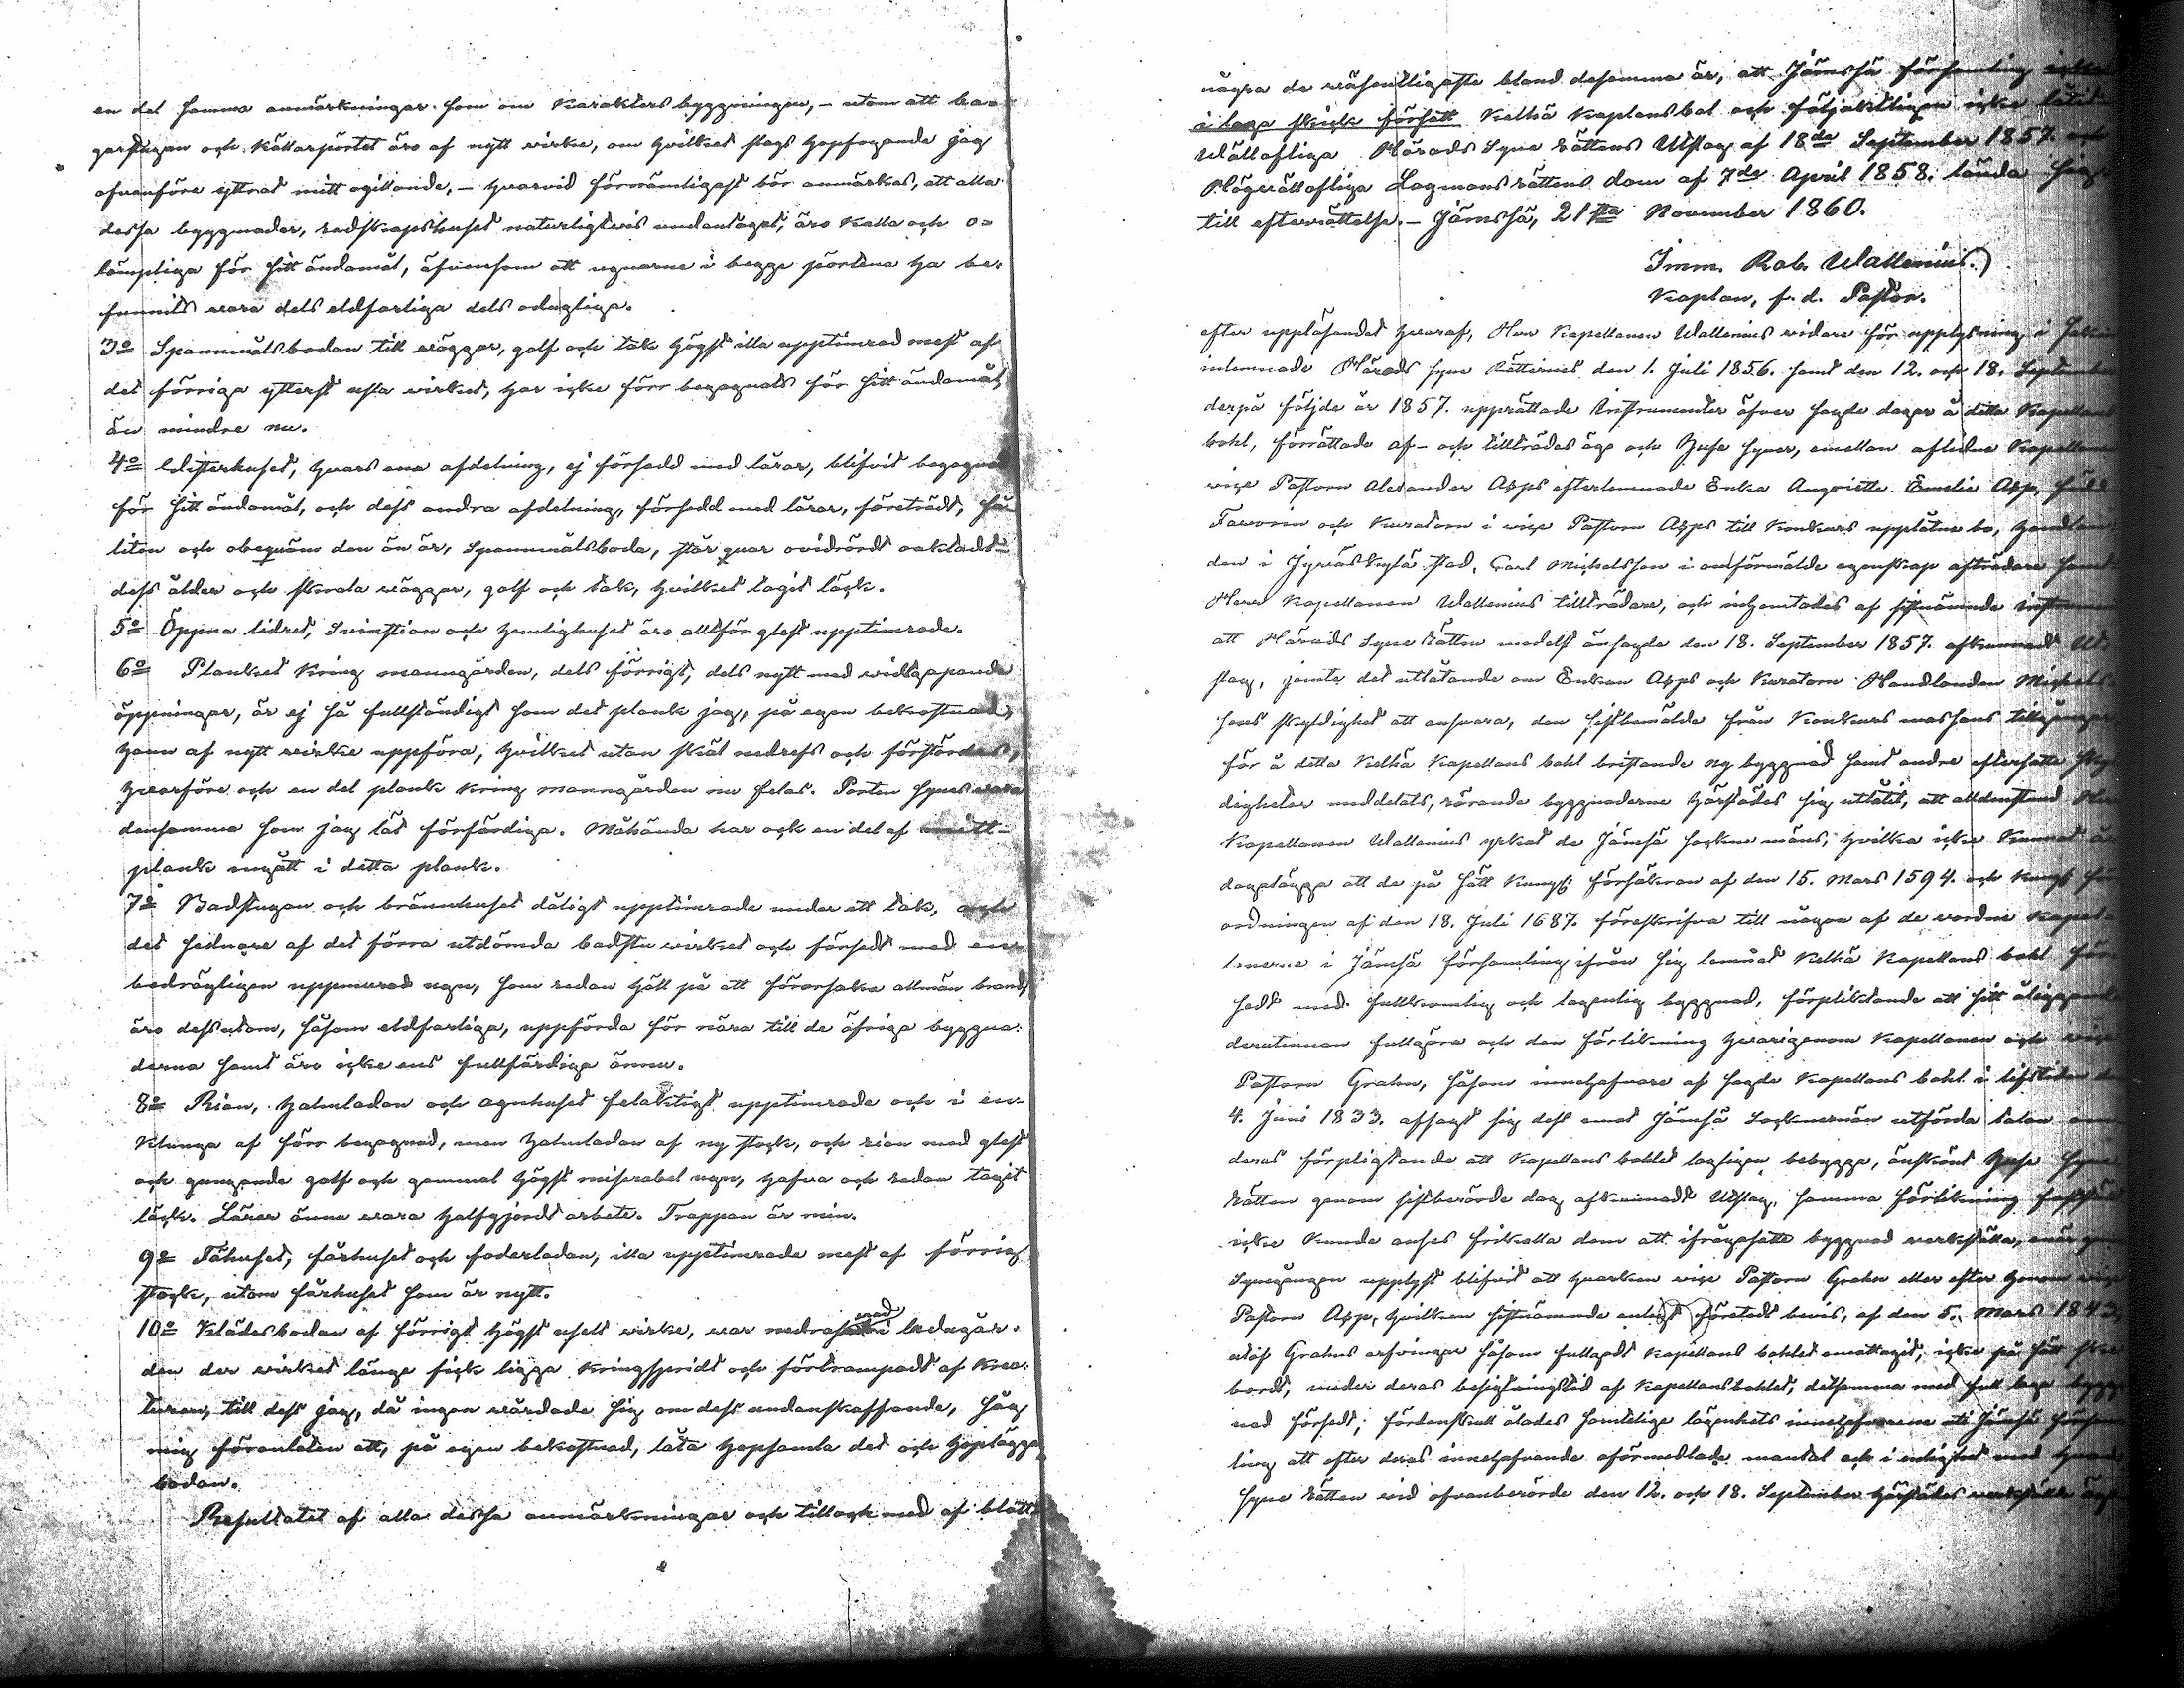 en del samma anmärkningar som om Karakters byggningen, – utom att ba-
garstugan och Källarpörtet äro af nytt virke, om hvilket slags hopfogande jag
ofvanföre yttrat mitt ogillande, – hvarvid förnämligast bör anmärkas, att alla
dessa byggnader, redskapshuset naturligtvis undantaget, äro kalla och o-
lämpliga för sitt ändamål, äfvensom att ugnarne i begge pörtena ha be-
funnits wara dels eldfarliga dels odugliga.
3o Spannmålsbodan till wäggar, golf och tak högst illa upptimrad mest af
det förriga ytterst usla virket, har icke förr begagnats för sitt ändamål,
än mindre nu.
4o Visterhuset, hvars ena afdelning, ej försedd med lårar, blifvit begagnad
för sitt ändamål, och dess andra afdelning, försedd med lårar, företrädt, så
liten och obequäm den än är, Spannmålsboda, står quar ovidrördt oaktadt
dess ålder och skrala wäggar, golf och tak, hvilket tagit läck.
5o Öppna lidret, Svinstian och hemlighuset äro alltför glest upptimrade.
6o Planket kring manngården, dels förrigt, dels nytt med vidtgapande
öppningar, är ej så fullständigt som det plank jag, på egen bekostnad,
hann af nytt wirke uppföra, hvilket utan skäl nedrefs och förstördes,
hvarföre och en del plank kring manngården nu felas. Porten synes wara
densamma som jag lät förfärdiga. Måhända har ock en del af mitt
plank ingått i detta plank.
7o Badstugan och brännhuset dåligt upptimrade under ett tak, och
det sednare af det förra utdömda badstu wirket och försedt med en
bedrägligen uppmurad ugn, som redan höll på att förorsaka allmän brand,
äro dessutom, såsom eldfarliga, uppförda för nära till de öfriga byggna-
derna samt äro icke ens fullfärdiga ännu.
8o Rian, halmladan och agnhuset felaktigt upptimrade och i en
klunga af förr begagnad, men halmladan af ny stock, och rian med glest
och gungande golf och gammal högst miserabel ugn, hafva och redan tagit
läck. Lärer ännu wara halfgjordt arbete. Trappan är min.
9o Fähuset, fårhuset och foderladan, illa upptimrade mest af förrig
stock, utom fårhuset som är nytt.
10o Klädesbodan af förrigt högst uselt wirke, war nedrasad i ladugår-
den der wirket länge fick ligga kringspridt och förtrampadt af krea-
turen, till dess jag, då ingen wårdade sig om dess undanskaffande, såg
mig föranlåten att, på egen bekostnad, låta hopsamla det och hoplägga
bodan.
Resultatet af alla dessa anmärkningar och tillock med af blott
några de wäsendtligaste bland desamma är, att Jämsä församling icke
i laga skick försatt Kelhä Kaplansbol och följaktligen icke låtit
Wällofliga Härads Syne Rättens Utslag af 18de September 1857. och
Högvällofliga Lagmans rättens dom af 7de April 1858. lända sig
till efterrättelse. – Jämsä, 21sta November 1860.
Imm. Rob. Wallenius.)
Kaplan, f.d. Pastor.
efter uppläsandet hvaraf, Herr Kapellanen Wallenius widare för upplysning i Saken
inlemnade Härads Syne Rättens den 1. Juli 1856. samt den 12. och 18. September
derpå följde år 1857. upprättade Instrumenter öfver sagde dagar å detta Kapellans
bohl, förrättade af- och tillträdes äga och Huse Syner, emellan aflidne Kapellanen
vice Pastorn Alexander Apps efterlemnade Enka Emelie App,
och Kuratorn i vice Pastorn Apps till Konkurs upplåtna bo, handlan-
den i Jyväskylä stad, Carl Michelsson i omförmälde egenskap afträdare samt
Herr Kapellanen Wallenius tillträdare, och inhemtades af sistnämnde
att Härads Syne Rätten medelst ånsagde den 18. September 1857. afkunnadt Ut-
slag, jemte det utlåtande om Enkan Apps och Kuratorn Handlanden Michels-
sons skyldighet att ansvara, den sistbemälde från Konkurs massans tillgångar
för å detta Kelhä Kapellans bohl bristande ny byggnad samt andre eftersatte sky-
digheter meddelats, rörande byggnaderne härstädes sig utlåtit, att alldenstund Herr
Kapellanen Wallenius yrkat de Jämsä Sockne mäns, hvilka icke kunnat å
dagalägga att de på sätt Kungl. försäkran af den 15. Mars 1594. och Kungl. för-
ordningen af den 18. Juli 1687. föreskrifva till någon af de vordne Kapel-
lanerne i Jämsä församling ifrån sig lemnat Kelhä Kapellans bohl för-
sedt med fullkomlig och lagenlig byggnad, förpliktande att sitt åliggande
derutinnan fullgöra och den förlikning hvarigenom Kapellanen och vice
Pastorn Grahn, såsom innehafvare af sagde Kapellans bohl i lifstiden den
4. Juni 1833. afsagt sig dess emot Jämsä Socknemän utförda talan om
deras förpligtande att Kapellans bohlet lagligen bebygga, änskönt Huse Syne
Rätten genom sistberörde dag afkunnadt Utslag, samma förlikning faststäldt
icke kunde anses frikalla dem att ifrågasatte byggnad verkställa, enär
Synegången upplyst blifvit att hvarken vice Pastorn Grahn eller efter honom vice
Pastorn App, hvilken sistnämnde enligt företedt bevis, af den 5. Mars 1843,
utaf Grahns arfvingar såsom fullgodt Kapellans bohlet emottagit, icke på sätt ske
bordt, under deras besigtningstid af Kapellansbohlet, detsamma med full laga bygg-
nad försedt; fördenskull ålades samtelige lägenhets innehafvarene uti Jämsä försam-
ling att efter deras innehafvande oförmedlade mantal och i enlighet med hvad
Syne Rätten vid ofvanberörde den 12. och 18. September härstädes